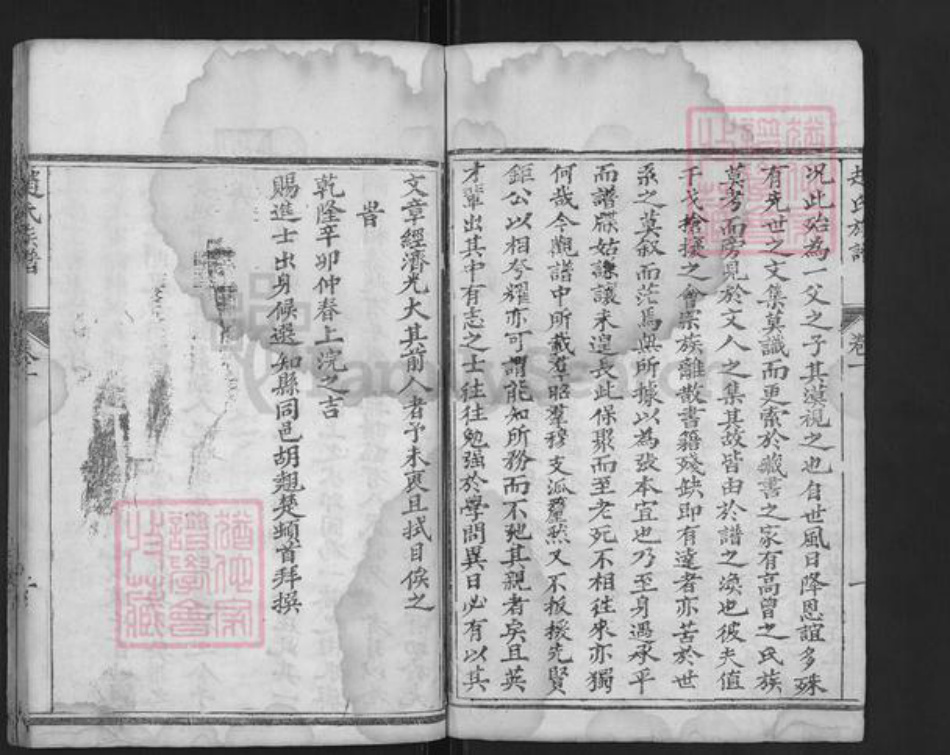 趙氏族譜
卷一
一
况此殆為一父之子其漠視之也自世風日降恩誼多殊
有充世之文集莫識而更索於藏書之家有高曾之氏族
莫考而旁見於文人之集其故皆由於譜之渙也彼夫值
干戈搶攘之會宗族離散書籍殘缺即有達者亦苦於世
系之莫叙而茫焉無所據以為張本宜也乃至身遇承平
而譜牒姑謙讓未遑長此保聚而至老死不相往來亦獨
何哉今觀譜中所載羣昭羣穆支派釐然又不扳援先賢
鉅公以相夸耀亦可謂能知所務而不虺其親者矣且英
才輩出其中有志之士往往勉强於學問異日必有以其
文章經濟光大其前人者予未更且拭目俟之
旹
乾隆辛卯仲春上浣之吉
賜進士出身候選知縣同邑胡翹楚頓首拜撰
趙氏族譜
卷一
FamilySearch
譜學會
收藏